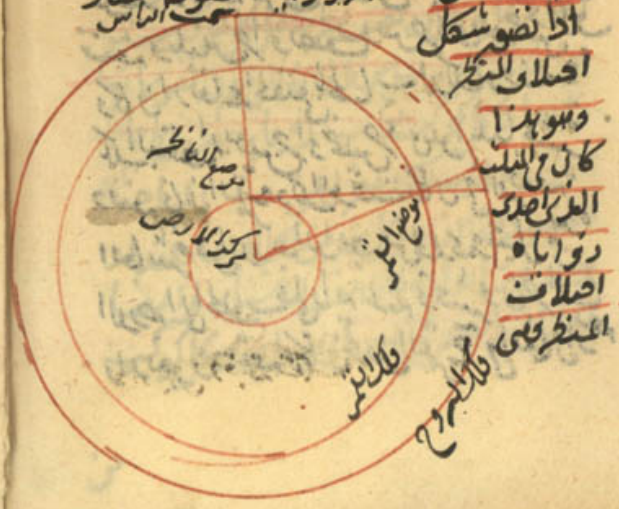 سمت الراس
اذا تصور شكل
اختلاف المنظر
وهو هذا
كان فى المثلث
الذى احدى
زواياه
اختلاف
المنظر
موضع الناظر
مركز الارض
موضع القمر
فلك القمر
فلك البروج